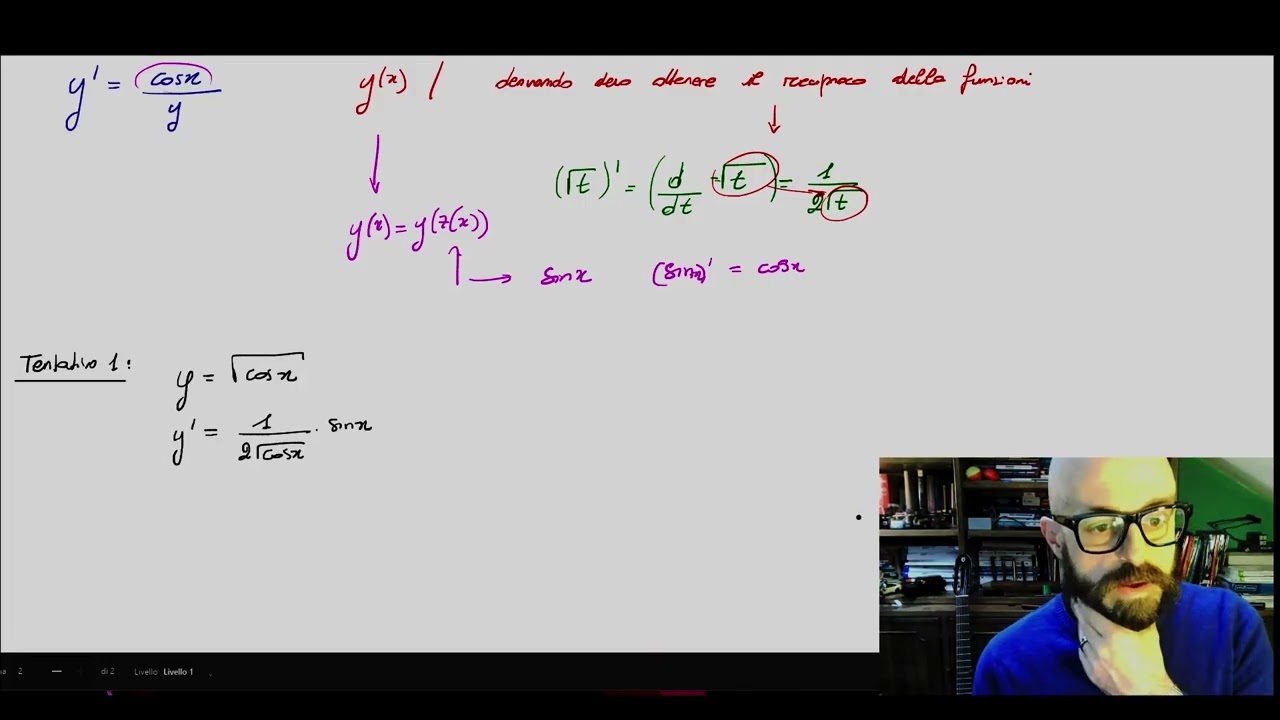 y' = cosx / y
y(x) / derivando devo ottenere il reciproco della funzioni
(√t)' = (d/dt √t) = 1/2√t
y(x) = y(z(x))
sinx (sinx)' = cosx
Tentativo 1:
y = √cosx
y' = 1/2√cosx · sinx
2 di 2 Livello Livello 1